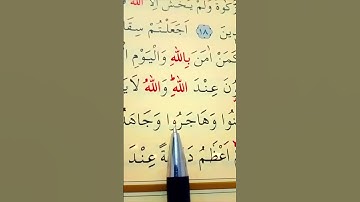 كٰوةَ وَلَمْ يَخْشَ اِلَّا اللّٰهَ
ينَ ﴿١٨﴾ اَجَعَلْتُمْ سِقَا
كَمَنْ اٰمَنَ بِاللّٰهِ وَالْيَوْمِ ا
نَ عِنْدَ اللّٰهِۜ وَاللّٰهُ لَا يَ
نُوا وَهَاجَرُوا وَجَاهَدُ
اَعْظَمُ دَرَجَةً عِنْدَ